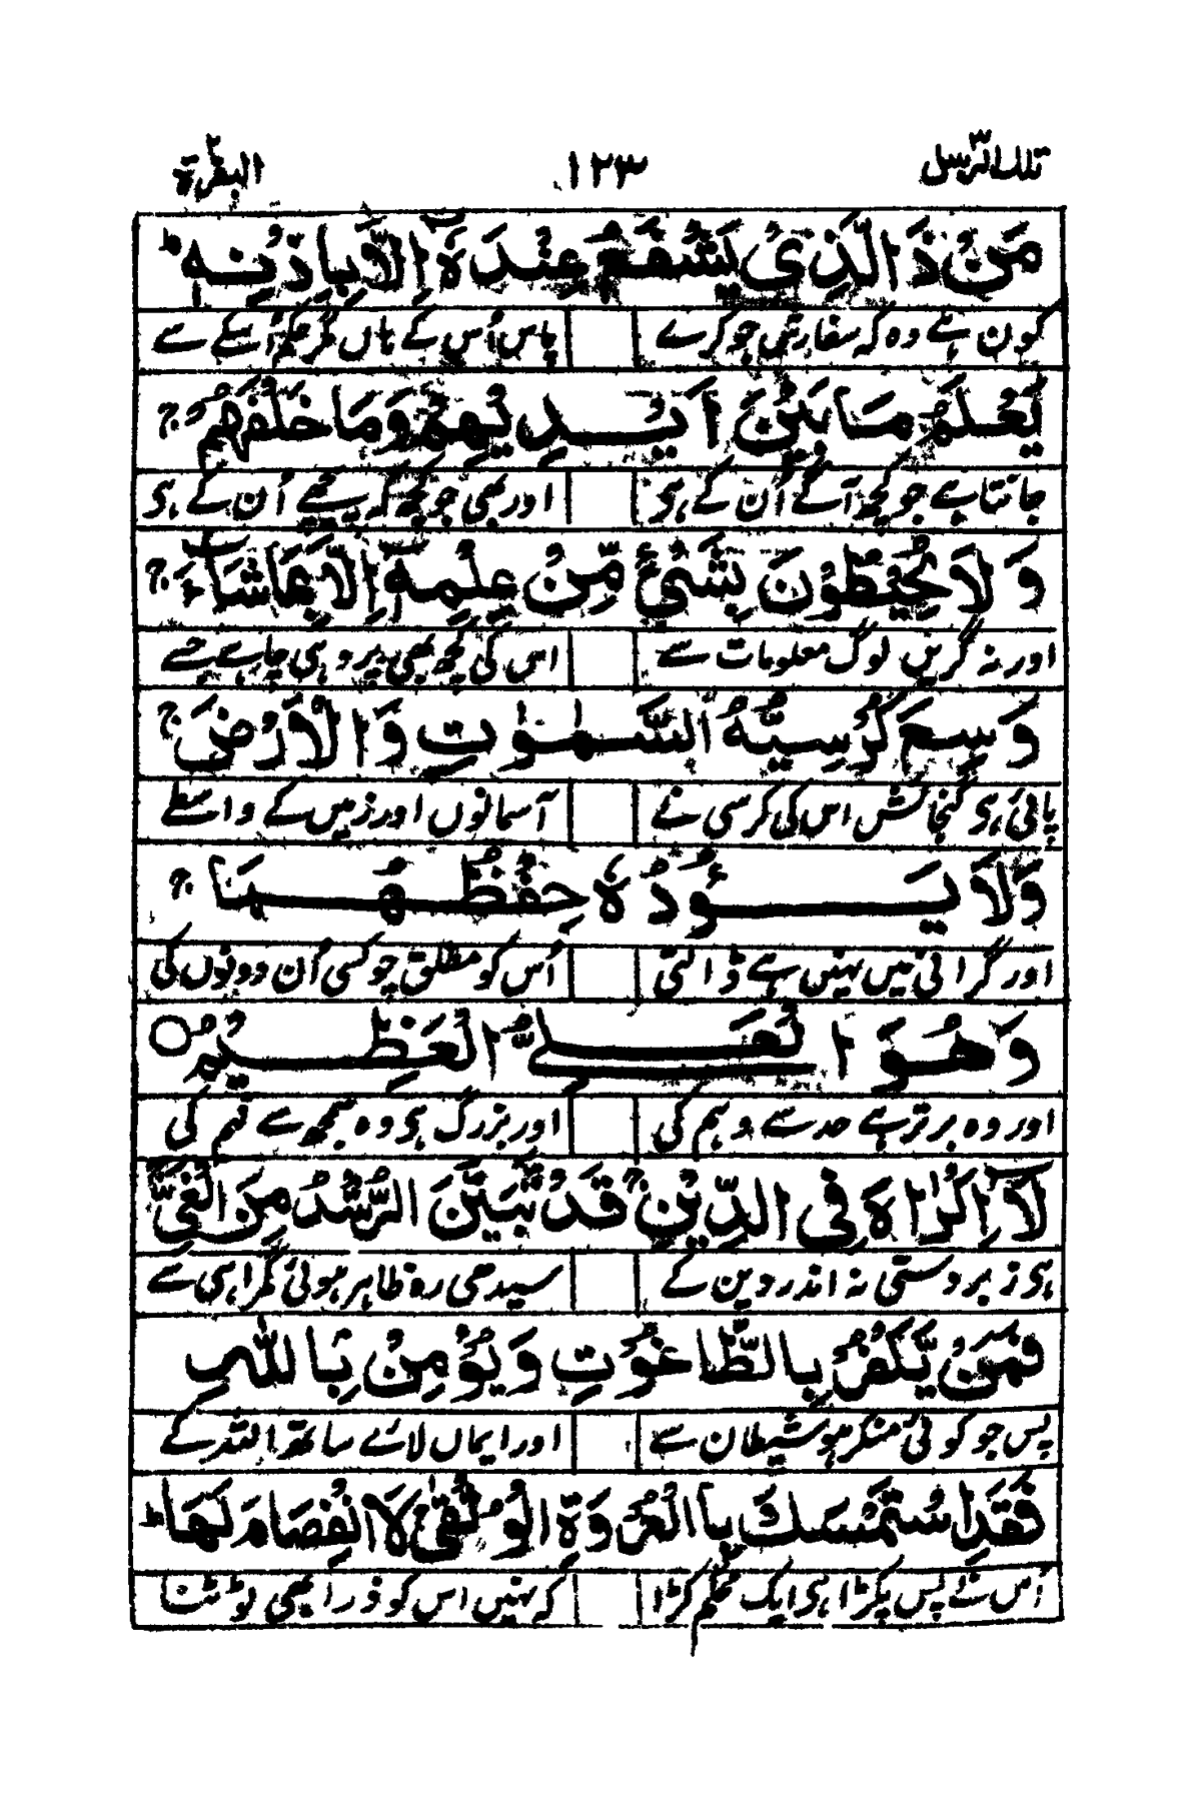 تلك الرسل ٣
١٢٣
البقرة ٢
مَنْ ذَا الَّذِيْ يَشْفَعُ عِنْدَهٗۤ اِلَّا بِاِذْنِهٖ ؕ
کون ہے وہ کہ سفارش جو کرے پاس اُس کے ہاں مگر حکم اُسکے سے
يَعْلَمُ مَا بَيْنَ اَيْدِيْهِمْ وَمَا خَلْفَهُمْ ۚ
جانتا ہے جو کچھ آگے اُن کے ہی اور بھی جو کچھ کہ پیچھے اُن کے ہی
وَلَا يُحِيْطُوْنَ بِشَيْءٍ مِّنْ عِلْمِهٖۤ اِلَّا بِمَا شَآءَ ۚ
اور نہ گھریں لوگ معلومات سے اس کی کچھ بھی پر وہی چاہے جسے
وَسِعَ كُرْسِيُّهُ السَّمٰوٰتِ وَالْاَرْضَ ۚ
پائی ہی گنجائش اس کی کرسی نے آسمانوں اور زمیں کے واسطے
وَلَا يَـُٔوْدُهٗ حِفْظُهُمَا ۚ
اور گرانی میں نہیں ہے ڈالتی اُس کو مطلق چوکسی اُن دونوں کی
وَهُوَ الْعَلِيُّ الْعَظِيْمُ ○
اور وہ برتر ہے حد سے وہم کی اور بزرگ ہی وہ سمجھ سے فہم کی
لَاۤ اِكْرَاهَ فِي الدِّيْنِ ۚ قَدْ تَّبَيَّنَ الرُّشْدُ مِنَ الْغَيِّ ۚ
ہی زبردستی نہ اندر دین کے سیدھی رہ ظاہر ہوئی گمراہی سے
فَمَنْ يَّكْفُرْ بِالطَّاغُوْتِ وَيُؤْمِنْۢ بِاللّٰهِ
پس جو کوئی منکر ہو شیطان سے اور ایماں لائے ساتھ اللہ کے
فَقَدِ اسْتَمْسَكَ بِالْعُرْوَةِ الْوُثْقٰى لَا انْفِصَامَ لَهَا ؕ
اُس نے پس پکڑا ہی ایک محکم کڑا کہ نہیں اس کو ذرا بھی ٹوٹنا